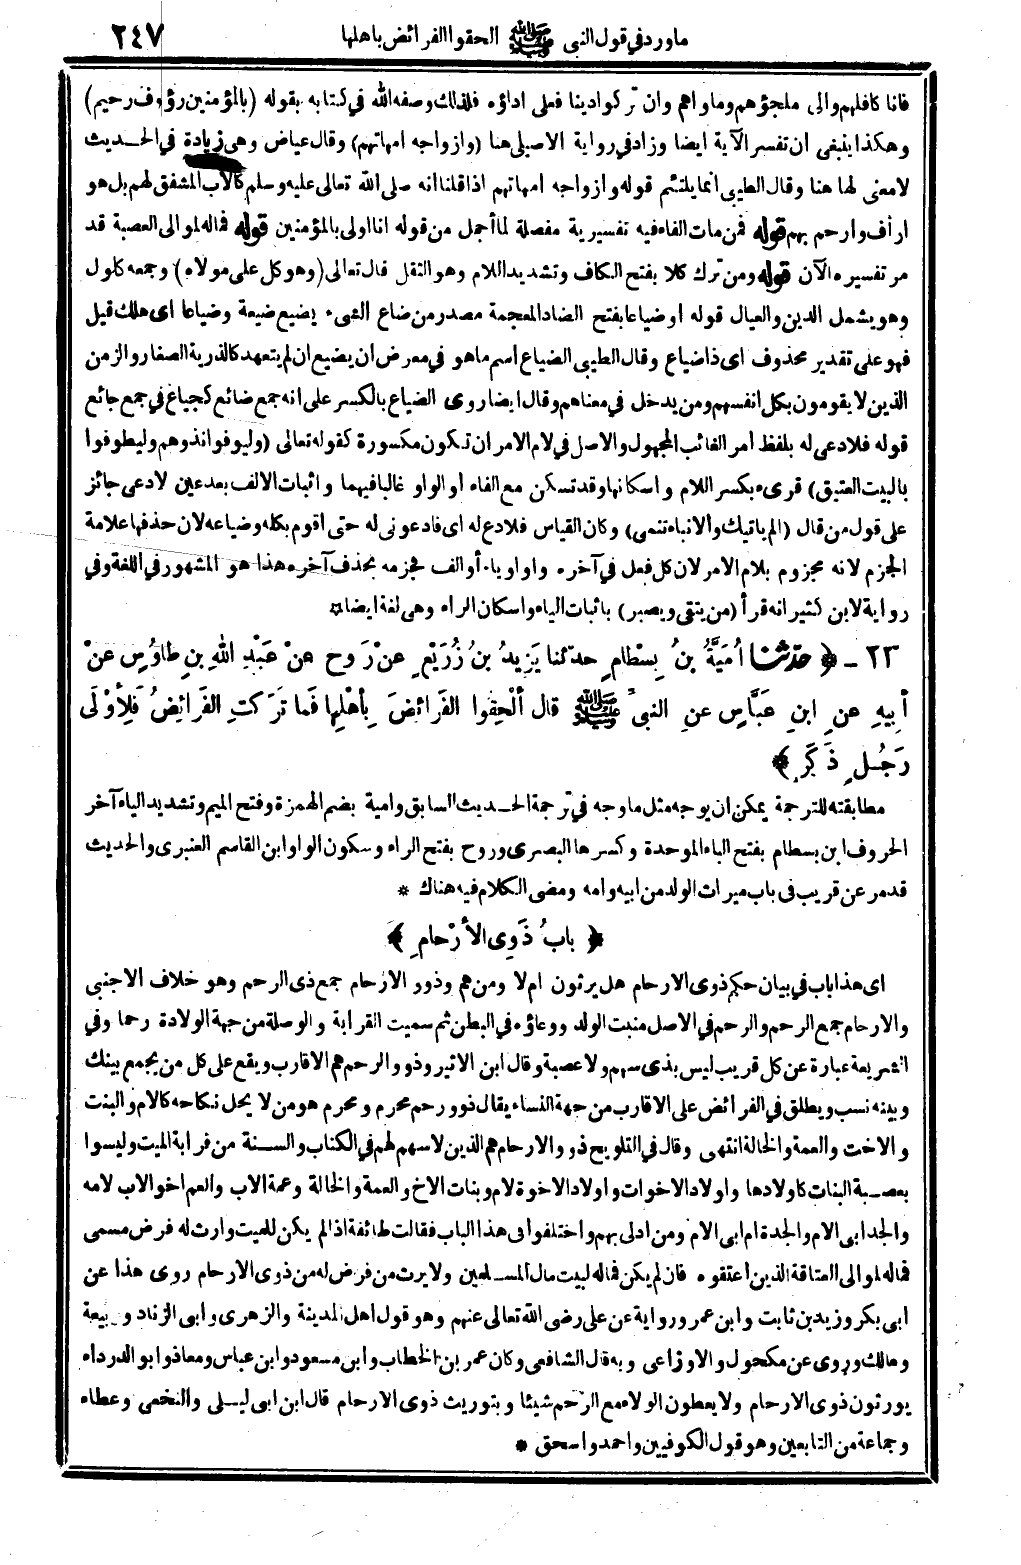 ماورد في قول النبي ﷺ الحقوا الفرائض باهلها ٢٤٧
فانا كافلهم والى ملجؤهم وماواهم وان تركوا دينا فعلى اداؤه فلذلك وصفه الله في كتابه بقوله (بالمؤمنين رؤوف رحيم)
وهكذا ينبغى ان تفسر الآية ايضا وزاد في رواية الاصيلى هنا (وازواجه امهاتهم) وقال عياض وهى زيادة في الحديث
لامعنى لها هنا وقال الطيبى انما يلتئم قوله وازواجه امهاتهم اذا قلنا انه صلى الله تعالى عليه وسلم كالاب المشفق لهم بل هو
ارأف وارحم بهم قوله فمن مات الفاء فيه تفسيرية مفصلة لما أجمل من قوله انا اولى بالمؤمنين قوله فماله لموالى العصبة قد
مر تفسيره الآن قوله ومن ترك كلا بفتح الكاف وتشديد اللام وهو الثقل قال تعالى (وهو كل على مولاه) وجمعه كلول
وهو يشمل الدين والعيال قوله أو ضياعا بفتح الضاد المعجمة مصدر من ضاع الشىء يضيع ضيعة وضياعا اى هلك قيل
فهو على تقدير محذوف اى ذا ضياع وقال الطيبى الضياع اسم ماهو في معرض ان يضيع ان لم يتعهد كالذرية الصغار والزمن
الذين لا يقومون بكل انفسهم ومن يدخل في معناهم وقال ايضا روى الضياع بالكسر على انه جمع ضائع كجياع في جمع جائع
قوله فلادعى له بلفظ امر الغائب المجهول والاصل في لام الامر ان تكون مكسورة كقوله تعالى (وليوفوا نذوهم وليطوفوا
بالبيت العتيق) قرىء بكسر اللام واسكانها وقد تسكن مع الفاء او الواو غالبا فيهما واثبات الالف بعد عين لادعى جائز
على قول من قال (الم ياتيك والانباء تنمى) وكان القياس فلادع له اى فادعونى له حتى اقوم بكله وضياعه لان حذفها علامة
الجزم لانه مجزوم بلام الامر لان كل فعل في آخره واو او ياء أو الف فجزمه بحذف آخره هذا هو المشهور في اللغة وفي
رواية لابن كثير انه قرأ (من يتقى ويصبر) باثبات الياء واسكان الراء وهى لغة ايضا ☆
٢٣ ـ ﴿ حدثنا أُمَيَّةُ بنُ بِسْطامٍ حدثنا يَزِيدُ بنُ زُرَيْعٍ عنْ رَوحٍ عنْ عَبْدِ اللهِ بنِ طاوُسٍ عنْ
أبِيهِ عنِ ابنِ عَبَّاسٍ عنِ النبىِّ ﷺ قال ألْحِقوا الفَرائضَ بِأهْلِها فَما تَرَكَتِ الفَرائِضُ فَلِأوْلَى
رَجُلٍ ذَكَرٍ ﴾
مطابقته للترجمة يمكن ان يوجه مثل ماوجه في ترجمة الحديث السابق وامية بضم الهمزة وفتح الميم وتشديد الياء آخر
الحروف ابن بسطام بفتح الباء الموحدة وكسرها البصرى وروح بفتح الراء وسكون الواو ابن القاسم العنبرى والحديث
قد مر عن قريب فى باب ميراث الولد من ابيه وامه ومضى الكلام فيه هناك *
﴿ بابُ ذَوِى الأرْحامِ ﴾
اى هذا باب في بيان حكم ذوى الارحام هل يرثون ام لا ومن هم وذوو الارحام جمع ذى الرحم وهو خلاف الاجنبى
والارحام جمع الرحم والرحم في الاصل منبت الولد ووعاؤه في البطن ثم سميت القرابة والوصلة من جهة الولادة رحما وفي
الشريعة عبارة عن كل قريب ليس بذى سهم ولا عصبة وقال ابن الاثير وذوو الرحم هم الاقارب ويقع على كل من يجمع بينك
وبينه نسب ويطلق في الفرائض على الاقارب من جهة النساء يقال ذو رحم محرم ومحرم هو من لا يحل نكاحه كالام والبنت
والاخت والعمة والخالة انتهى وقال في التلويح ذوو الارحام هم الذين لا سهم لهم في الكتاب والسنة من قرابة الميت وليسوا
بعصبة البنات كاولادها واولاد الاخوات واولاد الاخوة لام وبنات الاخ والعمة والخالة وعمة الاب والعم اخو الاب لامه
والجد ابى الام والجدة ام ابى الام ومن ادلى بهم واختلفوا فى هذا الباب فقالت طائفة اذا لم يكن للميت وارث له فرض مسمى
فماله لموالى العتاقة الذين اعتقوه فان لم يكن فماله لبيت مال المسلمين ولا يرث من فرض له من ذوى الارحام روى هذا عن
ابى بكر وزيد بن ثابت وابن عمر ورواية عن على رضى الله تعالى عنهم وهو قول اهل المدينة والزهرى وابى الزناد وربيعة
ومالك وروى عن مكحول والاوزاعى وبه قال الشافعى وكان عمر بن الخطاب وابن مسعود وابن عباس ومعاذ وابو الدرداء
يورثون ذوى الارحام ولا يعطون الولاء مع الرحم شيئا وبتوريث ذوى الارحام قال ابن ابى ليلى والنخعى وعطاء
وجماعة من التابعين وهو قول الكوفيين واحمد واسحق *